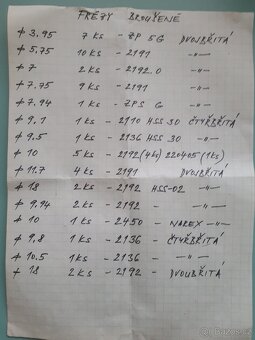 FRÉZY BROUŠENÉ
ø 3.95 7 ks - ZP 5G DVOJBŘITÁ
ø 5.75 10 ks - 2191 -"-
ø 7 2 ks - 2192.0 -"-
ø 7.75 9 ks - 2191 -"-
ø 7.94 1 ks - ZPS G -"-
ø 9,1 1 ks - 2110 HSS 30 ČTYŘBŘITÁ
ø 9.5 1 ks - 2136 HSS 30 -"-
ø 10 5 ks - 2192 (4ks) 220405 (1ks)
ø 11.7 4 ks - 2191 DVOJBŘITÁ
ø 18 2 ks - 2192 HSS-02 -"-
ø 9,94 2 ks - 2192 -"-
ø 10 1 ks - 2450 - NAREX -"-
ø 9,8 1 ks - 2136 - ČTYŘBŘITÁ
ø 10.5 1 ks - 2136 - -"-
ø 18 2 ks - 2192 - DVOUBŘITÁ